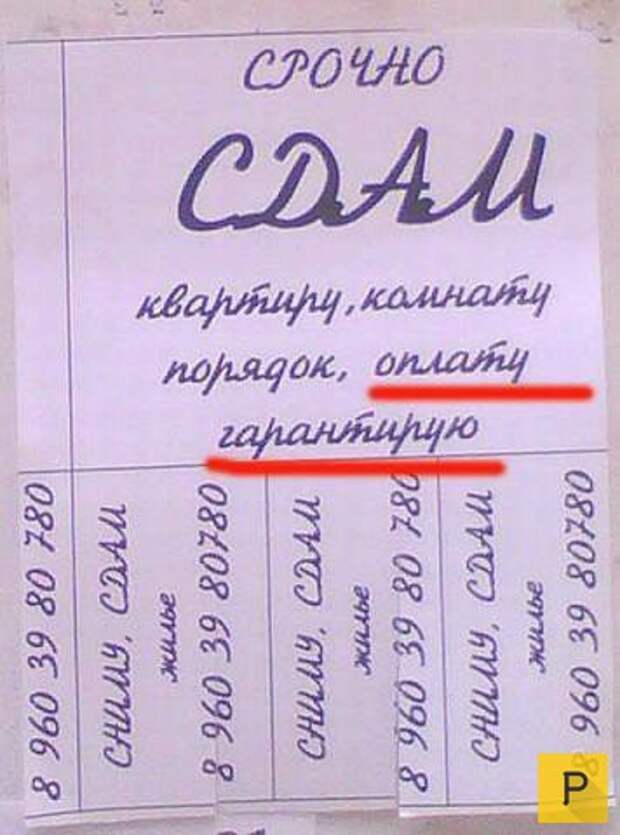 СРОЧНО
СДАМ
квартиру, комнату
порядок, оплату
гарантирую
8 960 39 80 780
СНИМУ, СДАМ
жилье
8 960 39 80780
СНИМУ, СДАМ
жилье
8 960 39 80 780
СНИМУ, СДАМ
жилье
8 960 39 80780
P